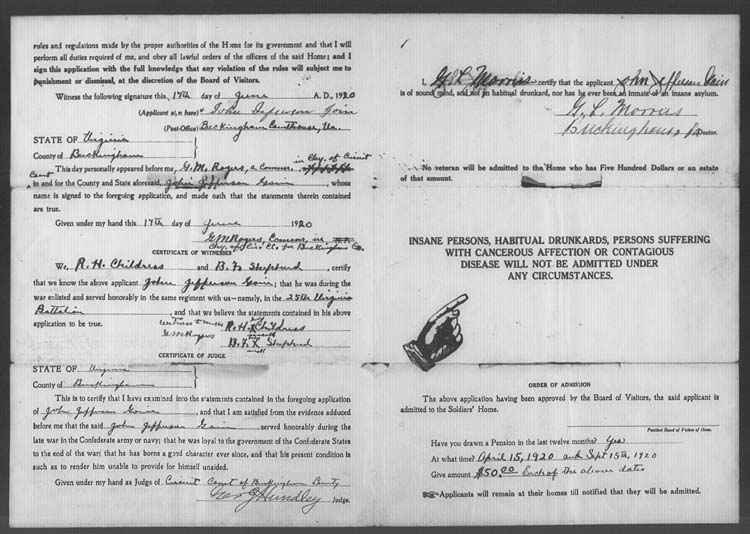 rules and regulations made by the proper authorities of the Home for its government and that I will
perform all duties required of me, and obey all lawful orders of the officers of the said Home; and I
sign this application with the full knowledge that any violation of the rules will subject me to
punishment or dismissal, at the discretion of the Board of Visitors.
Witness the following signature this 17th day of June A. D., 1920
(Applicant sign here) John Jefferson Goin
(Post-Office) Buckingham Courthouse, Va.
STATE OF Virginia
County of Buckingham
This day personally appeared before me, G. M. Rogers, a Commr. in Chy. of Circuit
Court
in and for the County and State aforesaid, John Jefferson Goin, whose
name is signed to the foregoing application, and made oath that the statements therein contained
are true.
Given under my hand this 17th day of June 1920
G M Rogers, Commr. in
Chy. of Cir. Ct. for Buckingham Co.
CERTIFICATE OF WITNESSES
We, R. H. Childress and B. F. Shepherd, certify
that we know the above applicant John Jefferson Goin; that he was during the
war enlisted and served honorably in the same regiment with us—namely, in the 25th Virginia
Battalion, and that we believe the statements contained in his above
application to be true.
Witness
G M Rogers
R. H. X Childress
B. F. X Shepherd
mark
CERTIFICATE OF JUDGE
STATE OF Virginia
County of Buckingham
This is to certify that I have examined into the statements contained in the foregoing application
of John Jefferson Goin, and that I am satisfied from the evidence adduced
before me that the said John Jefferson Goin served honorably during the
late war in the Confederate army or navy; that he was loyal to the government of the Confederate States
to the end of the war; that he has borne a good character ever since, and that his present condition is
such as to render him unable to provide for himself unaided.
Given under my hand as Judge of Circuit Court of Buckingham County
Geo J Hundley Judge.
I, G. L. Morris certify that the applicant John Jefferson Goin
is of sound mind, and not an habitual drunkard, nor has he ever been an inmate of an insane asylum.
G. L. Morris
Buckingham Va Doctor.
No veteran will be admitted to the Home who has Five Hundred Dollars or an estate
of that amount.
INSANE PERSONS, HABITUAL DRUNKARDS, PERSONS SUFFERING
WITH CANCEROUS AFFECTION OR CONTAGIOUS
DISEASE WILL NOT BE ADMITTED UNDER
ANY CIRCUMSTANCES.
ORDER OF ADMISSION
The above application having been approved by the Board of Visitors, the said applicant is
admitted to the Soldiers' Home.
President Board of Visitors of Home.
Have you drawn a Pension in the last twelve months? Yes
At what time? April 15, 1920 and Sept 15th, 1920
Give amount $50.00 Each of the above dates
Applicants will remain at their homes till notified that they will be admitted.